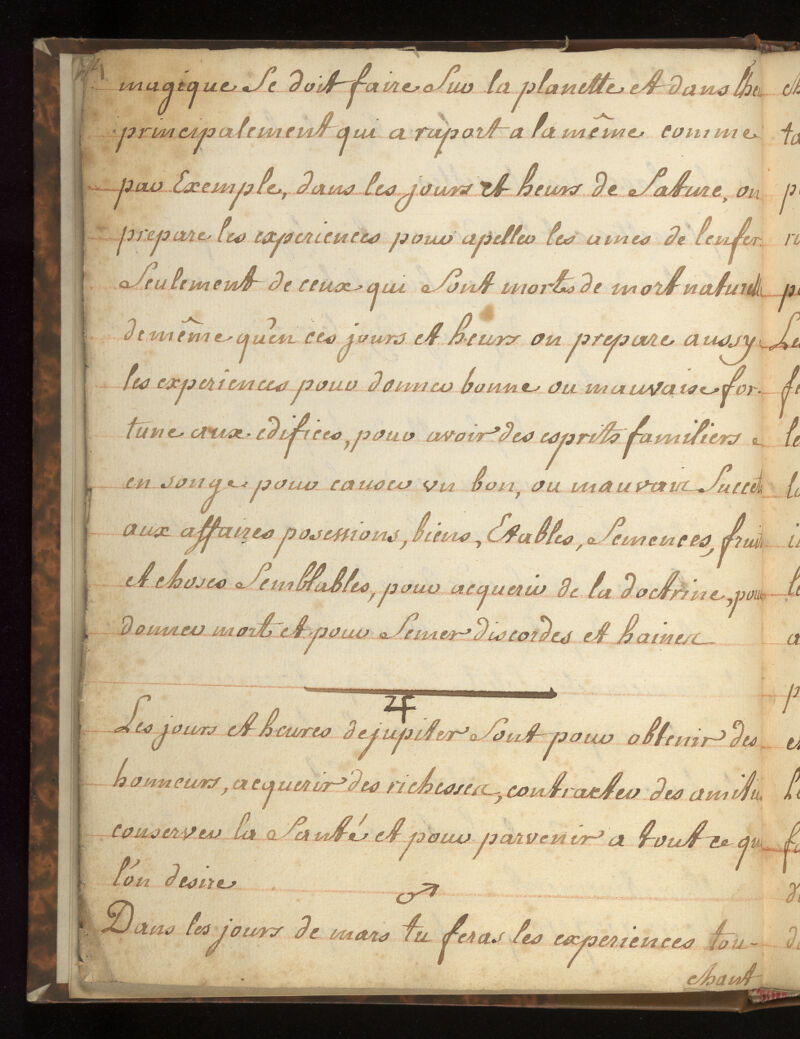 magique se doit faire sur la planette et dans lhe
principalement qui a raport a la même comme
par Exemple, dans les jours et heurs de Sature, on
prepare les experiences pour apeller les ames de lenfer
Seulement de ceux qui Sont morts de mort naturell
de même qu'en ces jours et heurs on prepare aussy
les experiences pour donner bonne ou mauvaise for-
tune aux edifices, pour avoir des esprits familiers e
en songe pour causer vn bon, ou mauvais Succet
aux affaires posessions, biens, Etables, Semences, frui
et choses Semblables, pour acquerir de la doctrine, pou
donner mort et pour Semer discordes et haines
♃
Les jours et heures de jupiter Sont pour obtenir des
honneurs, acquerir des richesses, contracter des amitie
conserver la Santé et pour parvenir a tout ce qu
l'on desire
♂
Dans les jours de mars tu feras les experiences tou-
chant